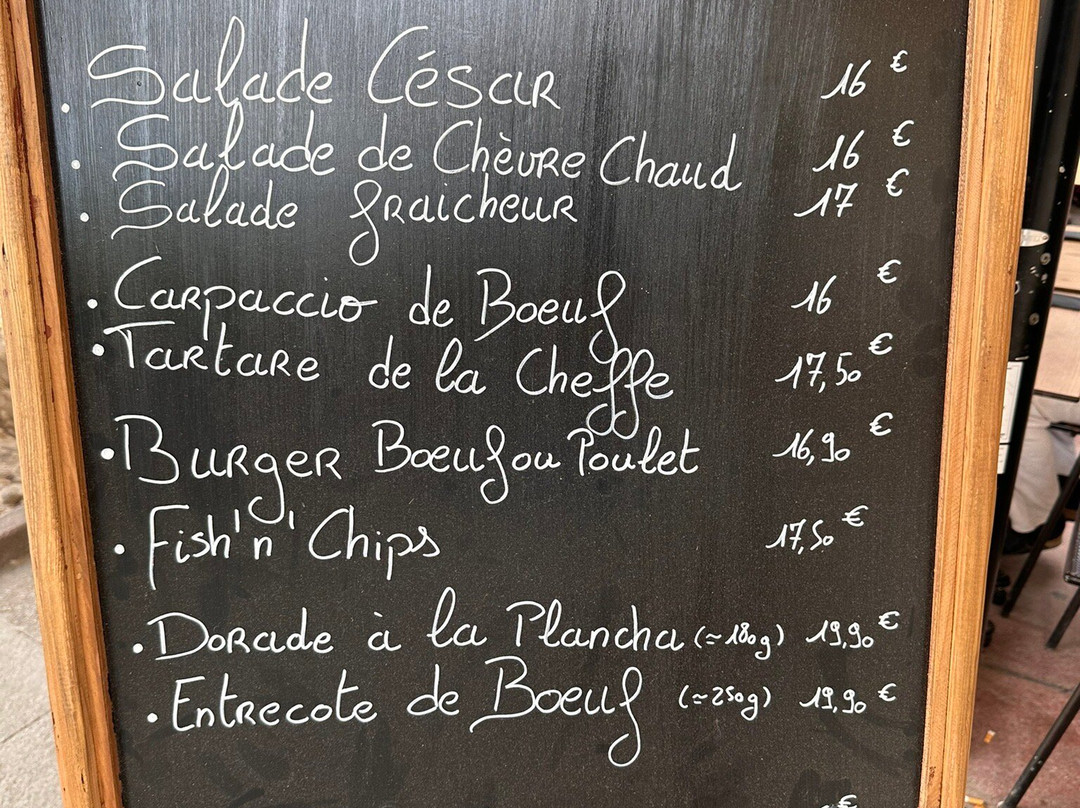 . Salade César 16 €
. Salade de Chèvre Chaud 16 €
. Salade fraicheur 17 €
. Carpaccio de Boeuf 16 €
. Tartare de la Cheffe 17,50 €
. Burger Boeuf ou Poulet 16,90 €
. Fish'n' Chips 17,50 €
. Dorade à la Plancha (≃180g) 19,90 €
. Entrecote de Boeuf (≃250g) 19,90 €
€